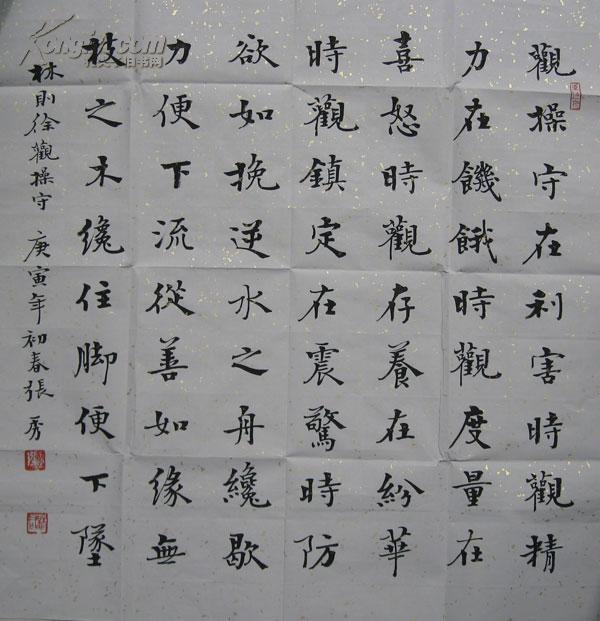 觀操守在利害時觀精
力在饑餓時觀度量在
喜怒時觀存養在紛華
時觀鎮定在震驚時防
欲如挽逆水之舟纔歇
力便下流從善如緣無
枝之木纔住脚便下墜
林則徐觀操守 庚寅年初春張秀